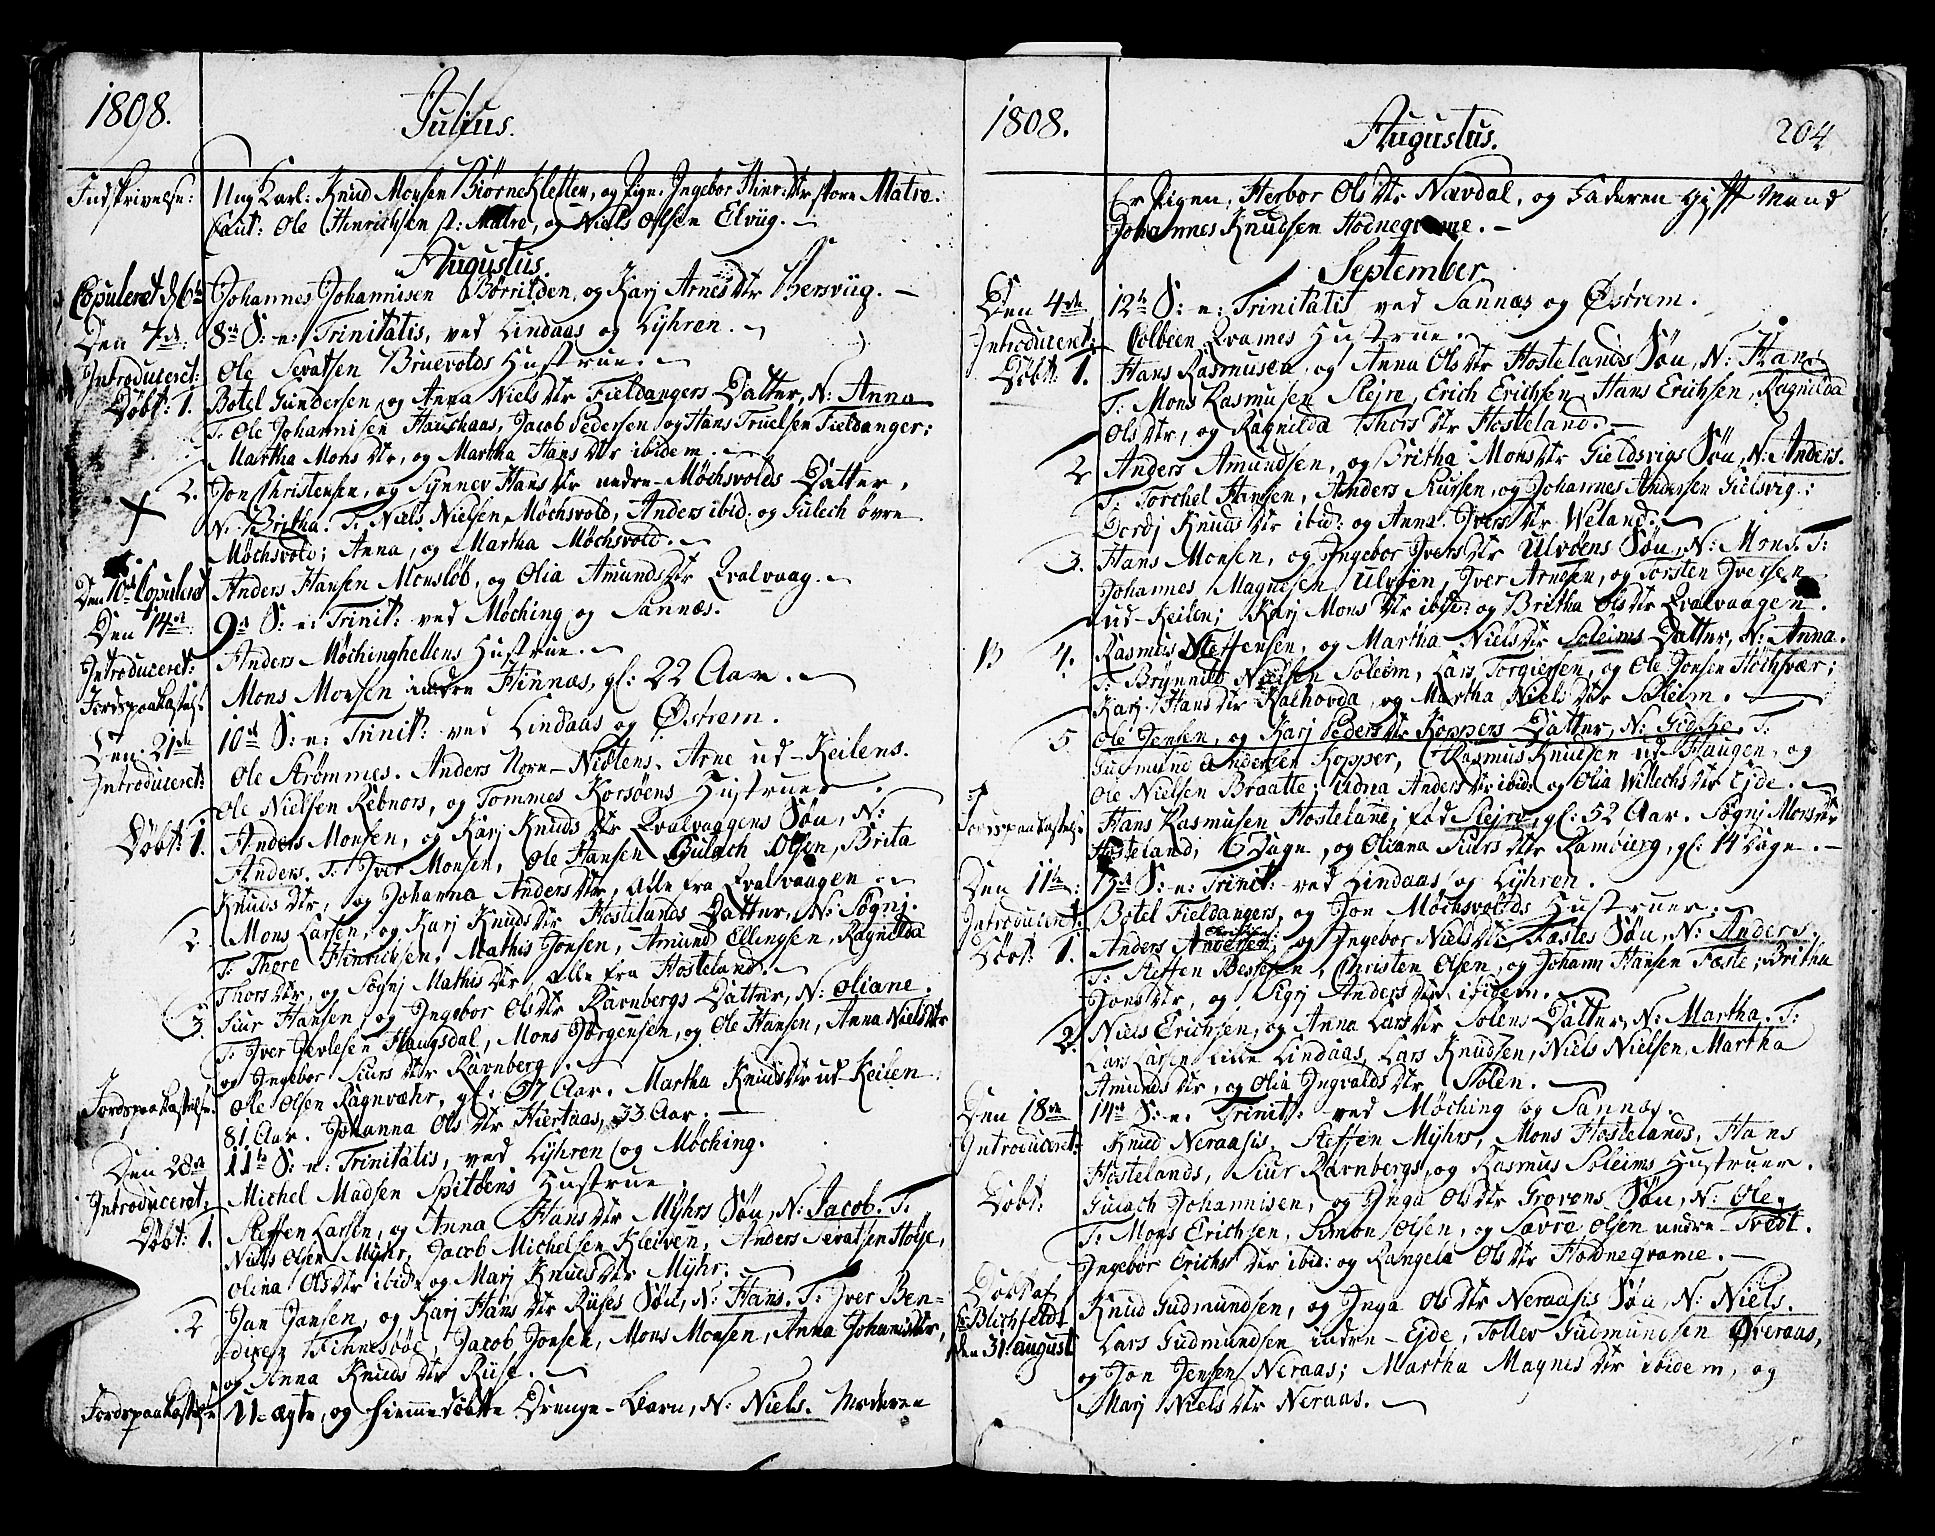 1808. Julius.
Indskrivelse: Ung Karl: Knud Monsen Biørnekletten, og Pige: Ingebor Hinr: Dtr store Matre:
Caut: Ole Hinrichsen st: Matre, og Niels Olsen Elvüg. –
Augustus.
Copuleret d. 6te Johannes Johannisen Børrilden, og Karj Arnes Dtr Hersvüg. –
Den 7de: 8de S: e: Trinitatis, ved Lindaas og Lÿhren. –
Introduceret: Ole Sevatsen Bruevolds Hustrue. –
Døbt: 1. Botel Gundersen, og Anna Niels Dtr Fieldangers Datter, N: Anna
T: Ole Johannisen Haukaas, Jacob Pedersen og Hans Truelsen Fieldanger;
Martha Mons Dtr, og Martha Hans Dtr ibidem. –
2. Jon Christensen, og Synnev Hans Dtr nedre-Møchsvolds Datter,
N: Britha. T: Niels Nielsen Møchsvold, Anders ibid: og Gulech øvre
Møchsvold; Anna, og Martha Møchsvold. –
Den 10de Copuleret Anders Hansen Monsløb, og Olia Amunds Dtr Qvalvaag. –
Den 14de: 9de S: e: Trinit: ved Møching og Sannæs.
Introduceret: Anders Møchinghellens Hustrue. –
Jordspaakastelse: Mons Monsen indre Hinnæs, gl: 22 Aar. –
Den 21de 10de S: e: Trinit: ved Lindaas og Østrem.
Introduceret: Ole Strømmes. Anders Norn-Niøtens. Arne ud-Keilens.
Ole Nielsen Rebnors, og Tommes Korsøens Hustruer.
Døbt 1. Anders Monsen, og Karj Knuds Dtr Qvalvaagens Søn, N:
Anders. T: Iver Monsen, Ole Hansen Gulach Olsen, Brita
Knuds Dtr, og Johanna Anders Dtr, alle fra Qvalvaagen. –
2. Mons Larsen, og Karj Knuds Dtr Hostelands Datter, N: Søgnj.
T: Thore Hinrichsen, Mathis Jonsen, Amund Ellingsen, Ragnilda
Thors Dtr, og Søgnj Mathis Dtr, alle fra Hosteland. –
3. Siur Hansen, og Ingebor Ols Dtr Ravnbergs Datter, N: Oliane.
T: Iver Haugsdal, Mons Jørgensen, og Ole Hansen, Anna Niels Dtr
og Ingebor Siurs Dtr Ravnberg. –
Jordspaakastelse: Ole Olsen Ragnvæhr, gl: 57 Aar. Martha Knuds Dtr ud Keilen
81 Aar. Johanna Ols Dtr Hiertaas, 33 Aar. –
Den 28de 11te S: e: Trinitatis, ved Lÿhren og Møching.
Introduceret: Michel Madsen Spitøens Hustrue.
Døbt: 1. Steffen Larsen, og Anna Hans Dtr Mÿhrs Søn, N: Jacob. T:
Niels Olsen Mÿhr, Jacob Michelsen Kleiven, Anders Sevatsen Hope,
Olina Ols Dtr ibid: og Marj Knuds Dtr Mÿhr.
2 Jan Jansen, og Karj Hans Dtr Rüses Søn, N: Hans. T: Iver Ben-
dixen Fehnesbøe, Jacob Jonsen, Mons Monsen, Anna Johannis Dtr,
og Anna Knuds Dtr Rüse. –
Jordspaakastelse: U-ægte, og hiemmedøbte Drenge-Barn, N: Niels. Moderen
1808. Augustus. 204
Er Pigen, Herbor Ols Dtr Nævdal, og Faderen gift Mand
Johannes Knudsen Hodnegrame. –
September
Den 4de 12te S: e: Trinitatis ved Sannæs og Østrem.
Introduceret: Colbeen Qvames Hustrue.
Døbt 1. Hans Rasmusen, og Anna Ols Dtr Hostelands Søn, N: Hans
T: Mons Rasmusen Slejre, Erich Erichsen, Hans Erichsen, Ragnilda
Ols Dtr, og Ragnilda Thors Dtr Hosteland. –
2 Anders Amundsen, og Britha Mons Dtr Gieldsvigs Søn, N: Anders.
T: Torchel Hansen, Anders Siursen, og Johannes Andersen Gielsvig;
Gordj Knuds Dtr ibid: og Anna Ivers Dtr Weland. –
3. Hans Monsen, og Ingebor Ivers Dtr Ulvøens Søn, N: Mons. T:
Johannes Magnesen Ulvøen, Iver Arnesen, og Torsten Iversen
ud-Keilen; Karj Mons Dtr ibid: og Britha Ols Dtr Qvalvaagen.
4. Rasmus Steffensen, og Martha Niels Dtr Soleims Datter, N: Anna.
T: Brÿnnild Nielsen Soleim, Lars Torgiersen, og Ole Jonsen Høchsvær;
Karj Hans Dtr Kalhovda, og Martha Niels Dtr Soleim.
5 Ole Jensen, og Karj Peders Dtr Koppers Datter, N: T:
Gudmund Andersen Kopper, Rasmus Knudsen ud-Haugen, og
Ole Nielsen Braatte; Udna Anders Dtr ibid: og Olia Willachs Dtr Ejde. –
Jordspaakastelse: Hans Rasmusen Hosteland, fød Slejre, gl: 52 Aar. Søgnj Mons Dtr
Hosteland, 6 Dage, og Oliana Siurs Dtr Ramberg, gl: 14 Dage. –
Den 11te: 13de S: e: Trinit: ved Lindaas og Lÿhren.
Introduceret Botel Fieldangers, og Jon Møchsvolds Hustruer. –
Døbt 1. Anders Andersen, og Ingebor Niels Dtr Fæstes Søn, N: Anders.
T: Steffen Bessesen, Christen Olsen, og Johann Hansen Fæste; Britha
Jons Dtr, og Sigrj Anders Dtr ibidem. –
2. Niels Erichsen, og Anna Lars Dtr Solens Datter, N: Martha. T:
Lars Larsen Lille Lindaas, Lars Knudsen, Niels Nielsen, Martha
Amunds Dtr, og Olia Ingvalds Dtr Solen. –
Den 18de 14de S: e: Trinit: ved Møching og Sannæs.
Introduceret: Knud Neraasis, Steffen Mÿhrs, Mons Hostelands, Hans
Hostelands, Siur Ravnbergs, og Rasmus Soleims Hustruer.
Døbt: Gulach Johannisen, og Inga Ols Dtr Grovons Søn, N: Ole.
T: Mons Erichsen, Simon Olsen, og Savre Olsen nedre-Tvedt.
Ingebor Erichs Dtr ibid: og Rangela Ols Dtr Hodnegrame. –
Døbt af Knud Gudmundsen, og Inga Ols Dtr Neraasis Søn, N: Niels.
Blichfeldt Lars Gudmundsen indre-Ejde, Tollev Gudmundsen Øveraas,
den 31 august og Jon Jensen Neraas; Martha Magnes Dtr ibidem, og
Marj Niels Dtr Neraas. –